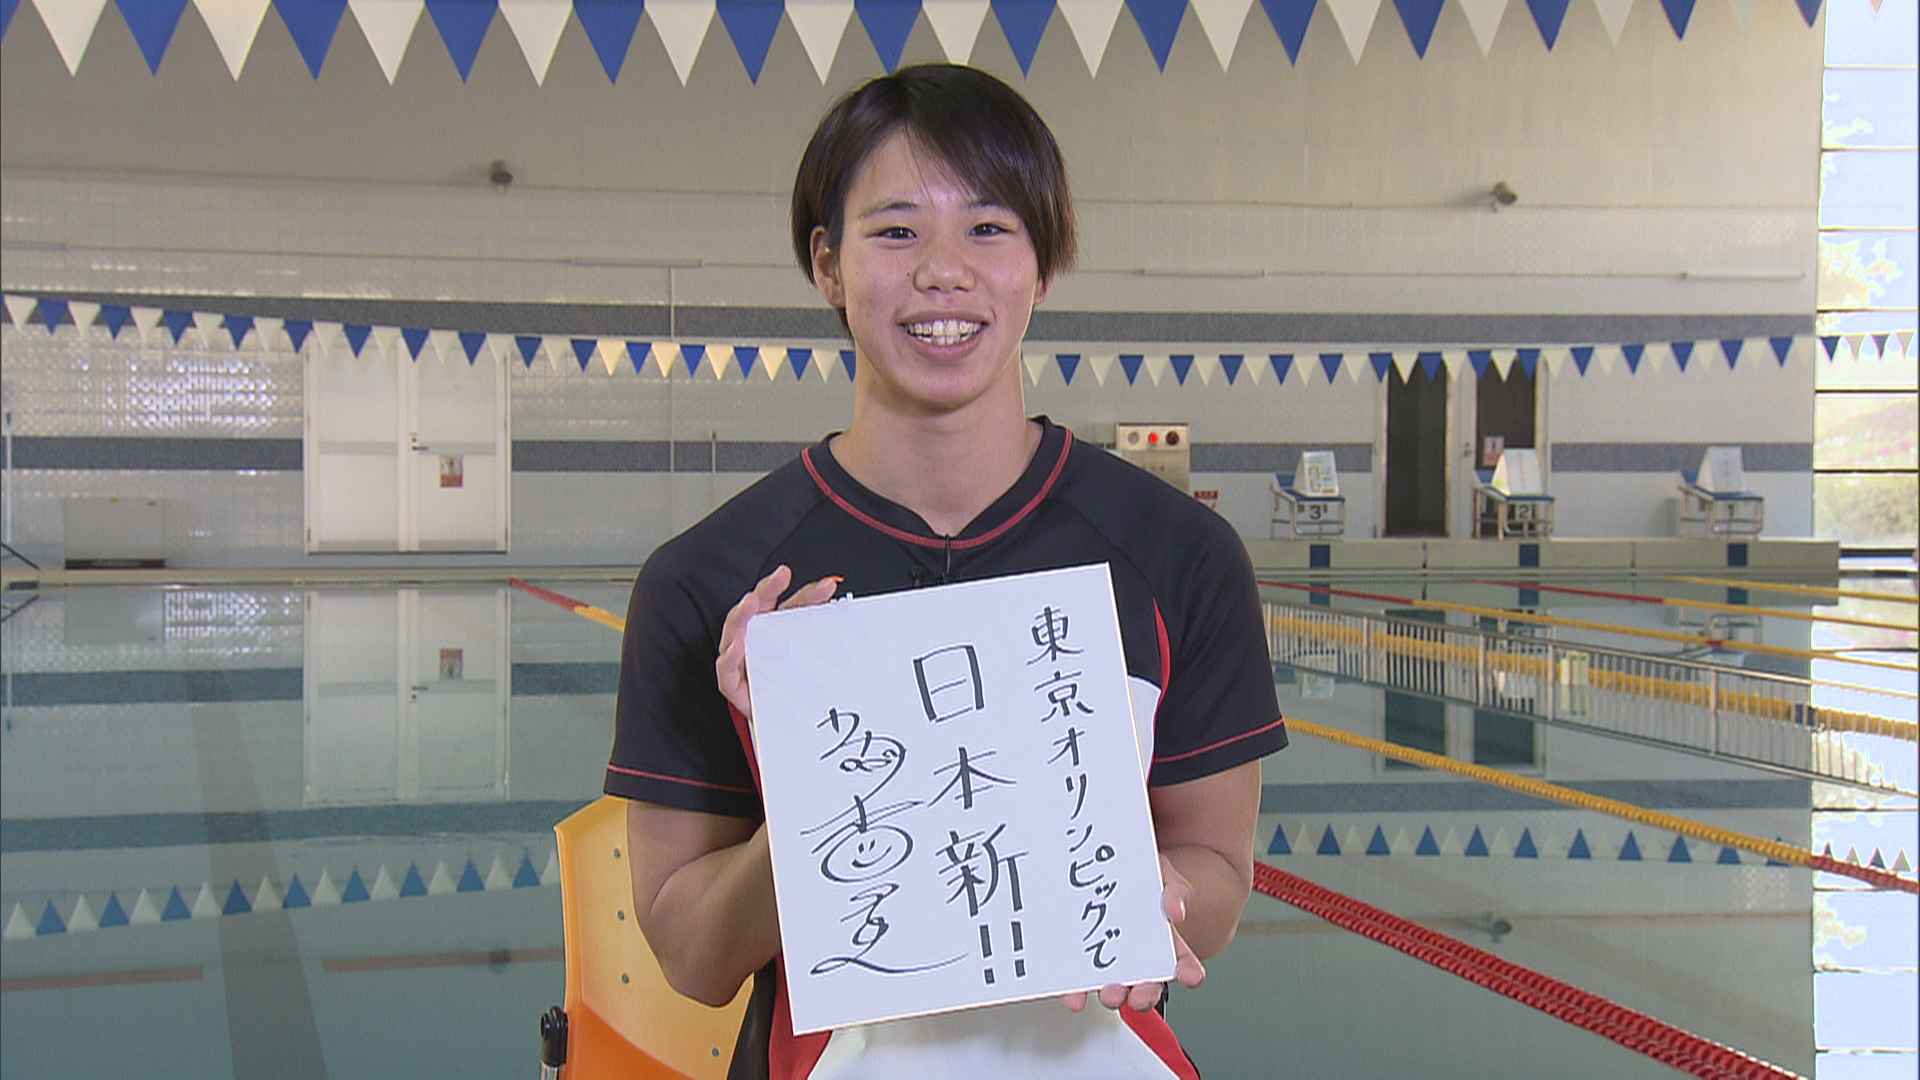 東京オリンピックで
日本新!!
3
2
1